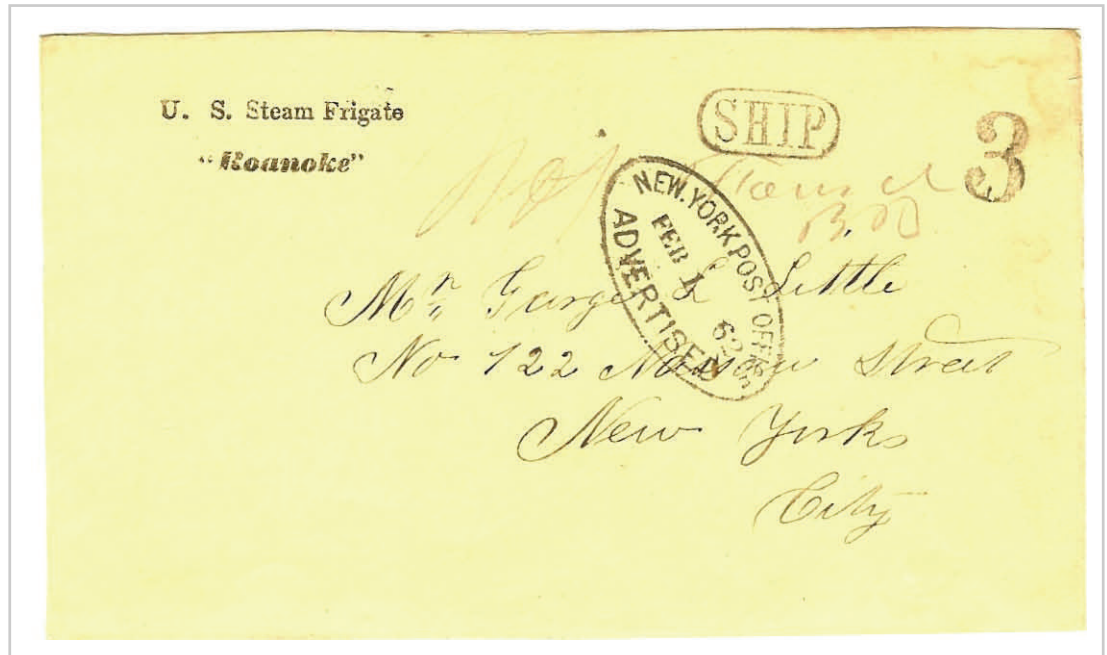 U. S. Steam Frigate
"Roanoke"
SHIP
3
Not Found
NEW YORK POST OFFICE
FEB 1 62
ADVERTISED
Mr. George L Little
No 122 Nassau Street
New York
City